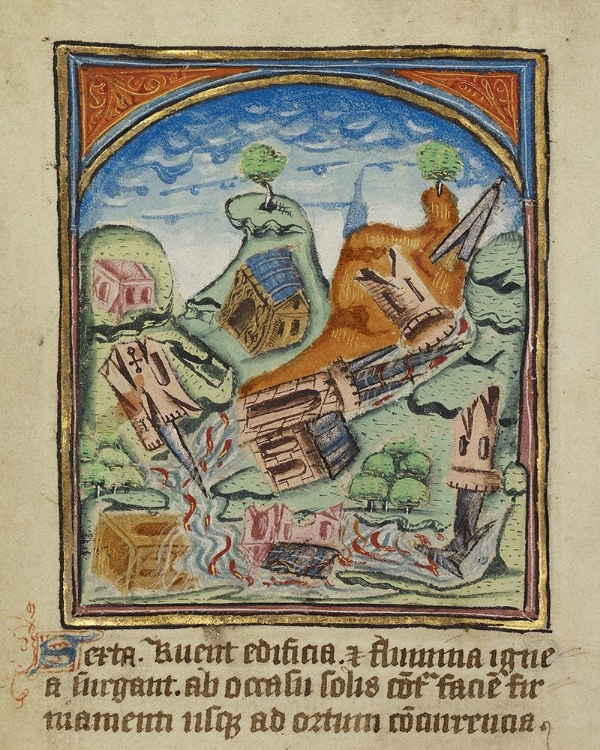 Sexta. Ruent edificia. ⁊ flumina igne
a surgant. ab occasu solis cōt͛ faciē fir
mamenti usqꝫ ad ortum cōcurrencia,